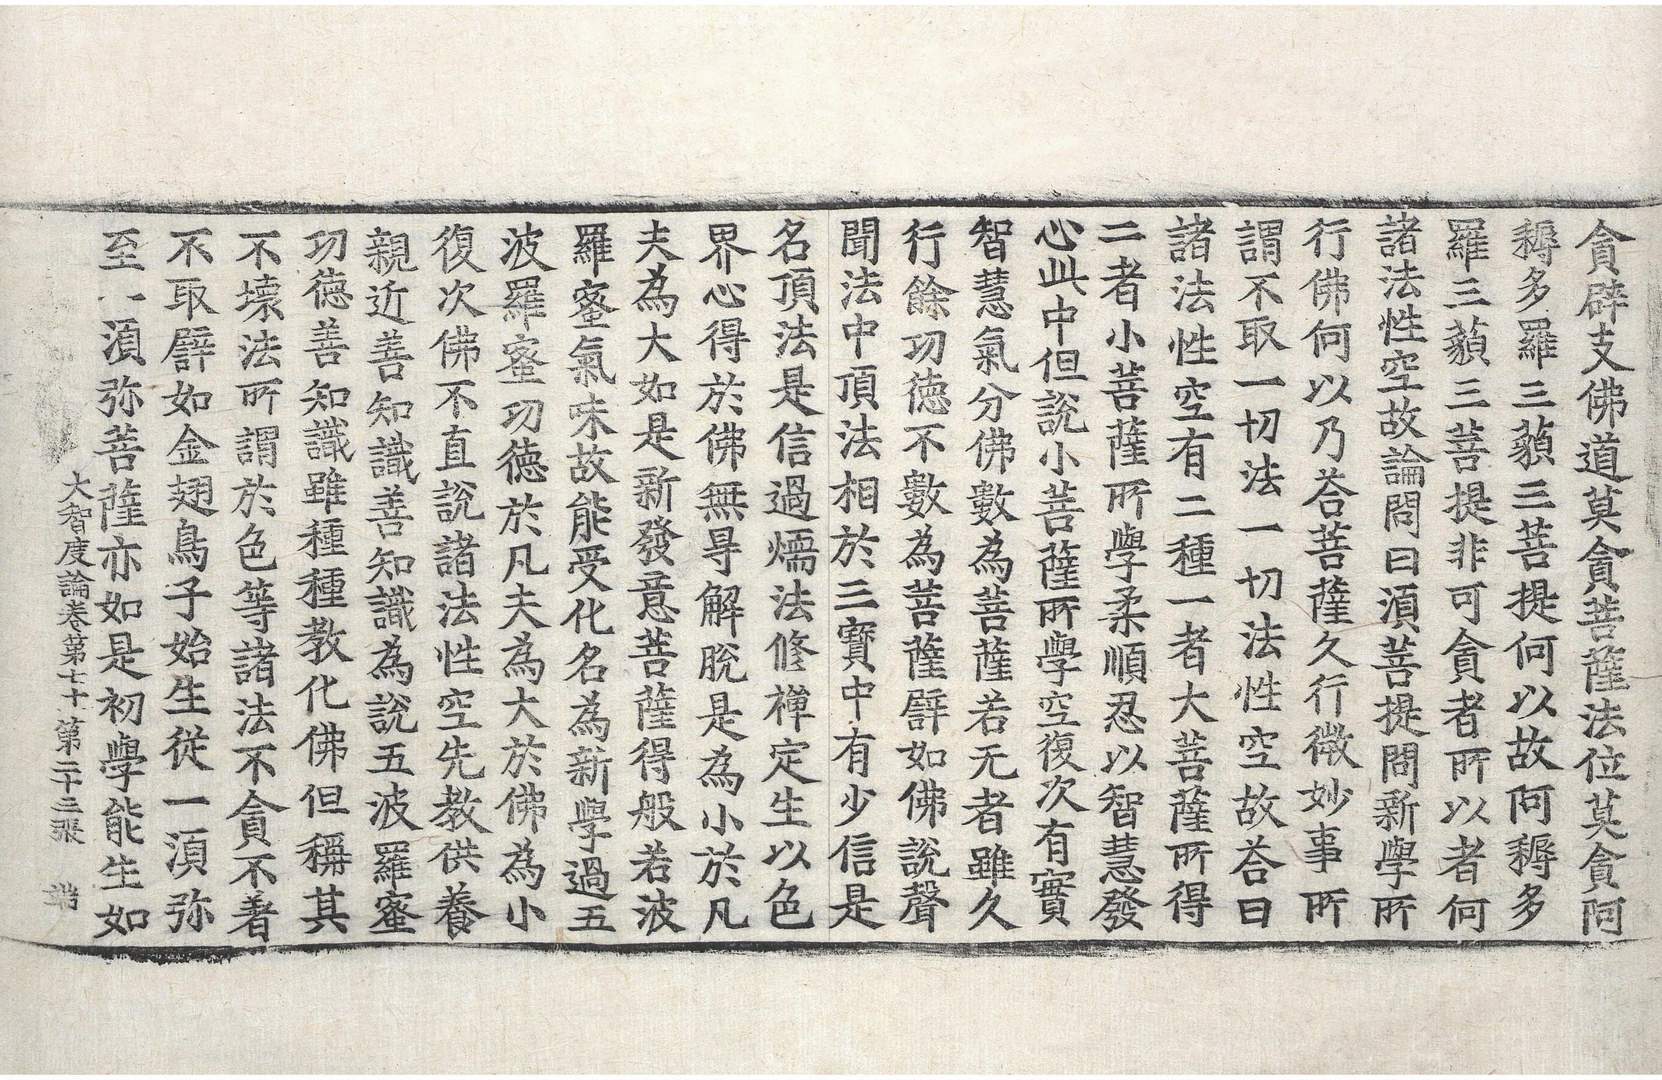 貪辟支佛道莫貪菩薩法位莫貪阿
耨多羅三藐三菩提何以故阿耨多
羅三藐三菩提非可貪者所以者何
諸法性空故論問曰湏菩提問新學所
行佛何以乃荅菩薩久行微妙事所
謂不取一切法一切法性空故荅曰
諸法性空有二種一者大菩薩所得
二者小菩薩所學柔順忍以智慧發
心此中但說小菩薩所學空復次有實
智慧氣分佛數為菩薩若无者雖久
行餘功德不數為菩薩譬如佛說聲
聞法中頂法相於三寶中有少信是
名頂法是信過燸法修禪定生以色
界心得於佛無㝵解脫是為小於凡
夫為大如是新發意菩薩得般若波
羅蜜氣味故能受化名為新學過五
波羅蜜功德於凡夫為大於佛為小
復次佛不直說諸法性空先教供養
親近善知識善知識為說五波羅蜜
功德善知識雖種種教化佛但稱其
不壞法所謂於色等諸法不貪不著
不取譬如金翅鳥子始生從一湏弥
至一湏弥菩薩亦如是初學能生如
大智度論卷第七十一第二十二張